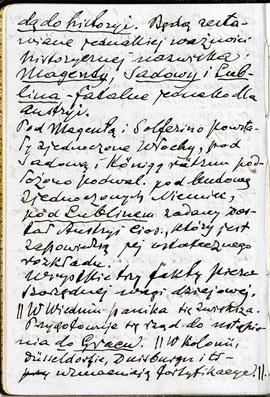 dą do historyi. Będą zesta-
wiane jednakiej ważności
historycznej nazwiska:
Magenty, Sadowy i Lub-
lina - fatalne jednako dla
Austryi.
Pod Magentą i Solferino powsta-
ły zjednoczone Włochy, pod
Sadową i Königgrätzem poł-
łożono podwal. pod budowę
zjednoczonych Niemiec,
pod Lublinem zadany zos-
tał Austryi cios, który jest
zapowiedzią jej ostatecznego
rozkładu.
Wszystkie trzy fakty pierw-
szorzędnej wagi dziejowej.
|| W Wiedniu panika się zwiększa.
Przygotowuje się rząd do ustąpie-
nia do Gracu. || W Kolonii,
Düsseldorfie, Duisburgu i
wzmacniają fortyfikacye. ||